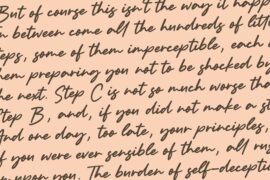 But of course this isn't the way it happ
n between come all the hundreds of littl
teps, some of them imperceptible, each o
hem preparing you not to be shocked by
he next. Step C is not so much worse tha
Step B, and, if you did not make a s
And one day, too late, your principles,
f you were ever sensible of them, all rus
upon you. The burden of self-decepti